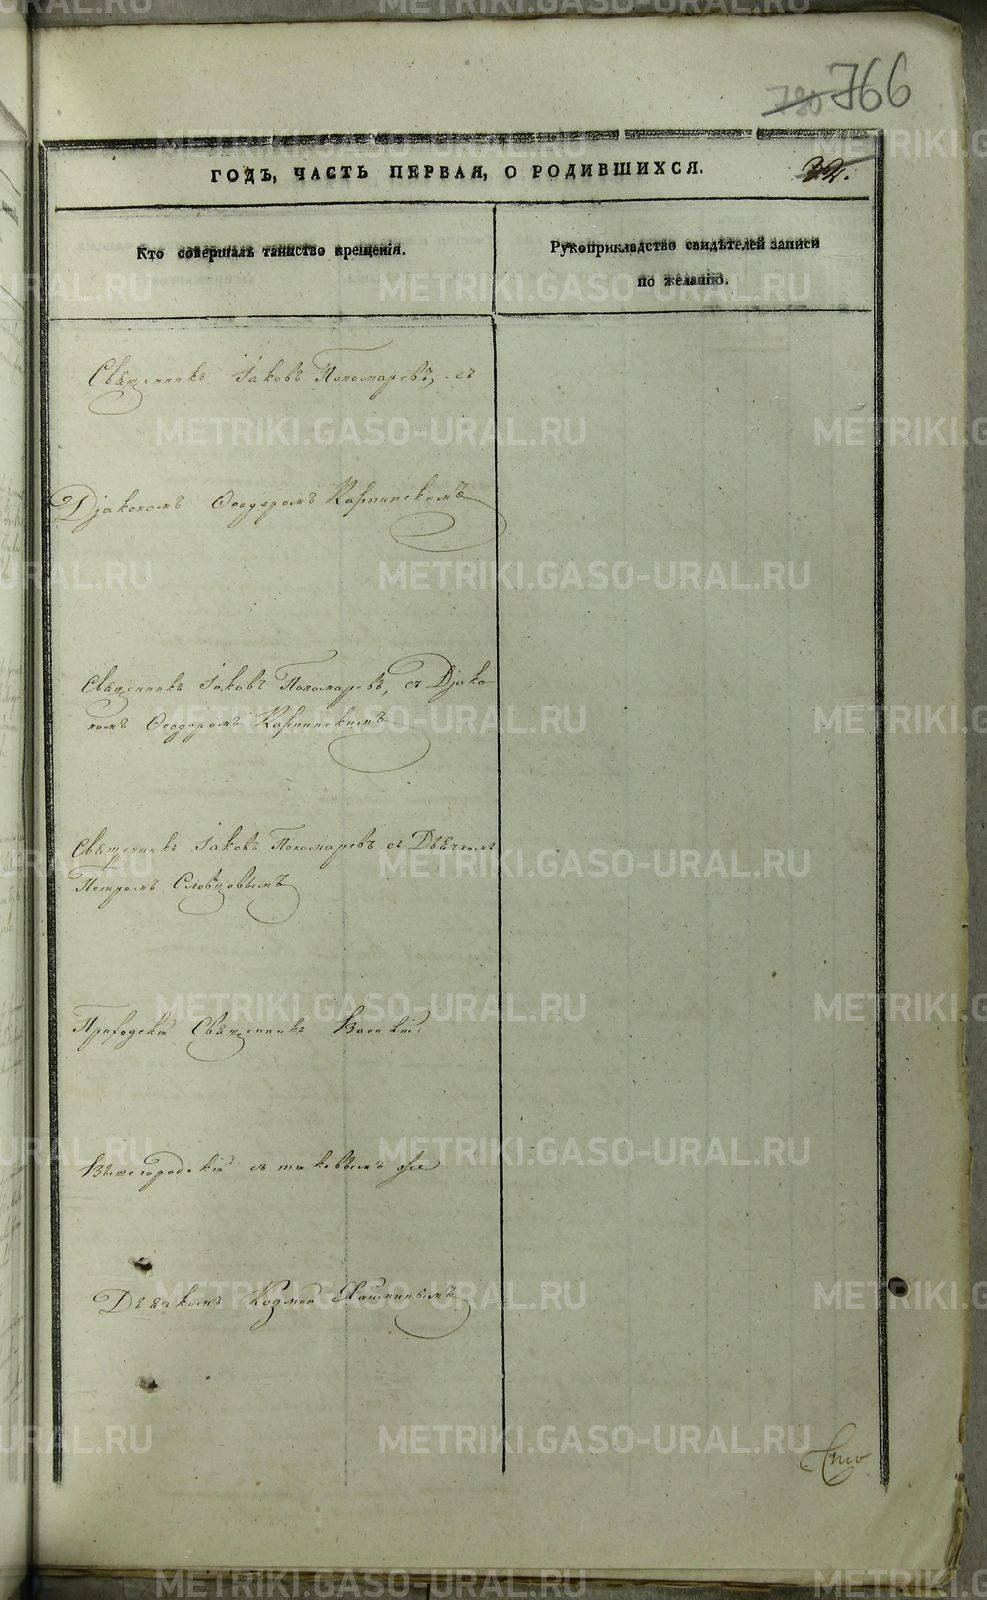 780 766
ГОДЪ, ЧАСТЬ ПЕРВАЯ, О РОДИВШИХСЯ.
Кто совершалъ таинство крещенія.
Рукоприкладство свидѣтелей записи
по желанію.
Священникъ Іаковъ Пономаревъ, съ
Діакономъ Ѳеодоромъ Карпинскимъ
Священникъ Іаковъ Пономаревъ, съ Діако
номъ Ѳеодоромъ Карпинскимъ
Священникъ Іаковъ Пономаревъ съ Дьячкомъ
Петромъ Словцовымъ
Приходскій Священникъ
Вышегородскій съ таковымъ же
Дьячкомъ Козмой
METRIKI.GASO-URAL.RU